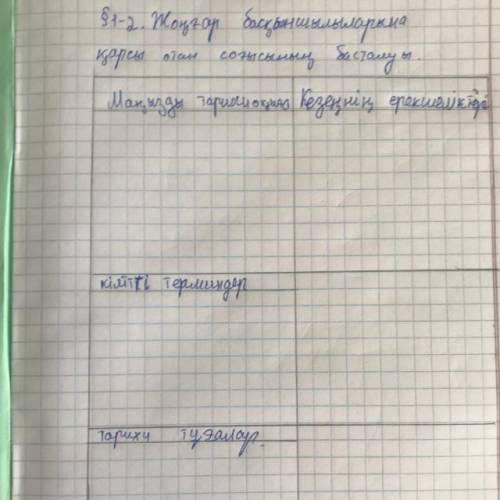 §1-2. Жоңғар басқыншылыларына
қарсы отан соғысының басталуы.
Маңызды тарихи оқиға Кезеңнің ерекшеліктері
кілтті терминдер
тарихи тұлғалар.